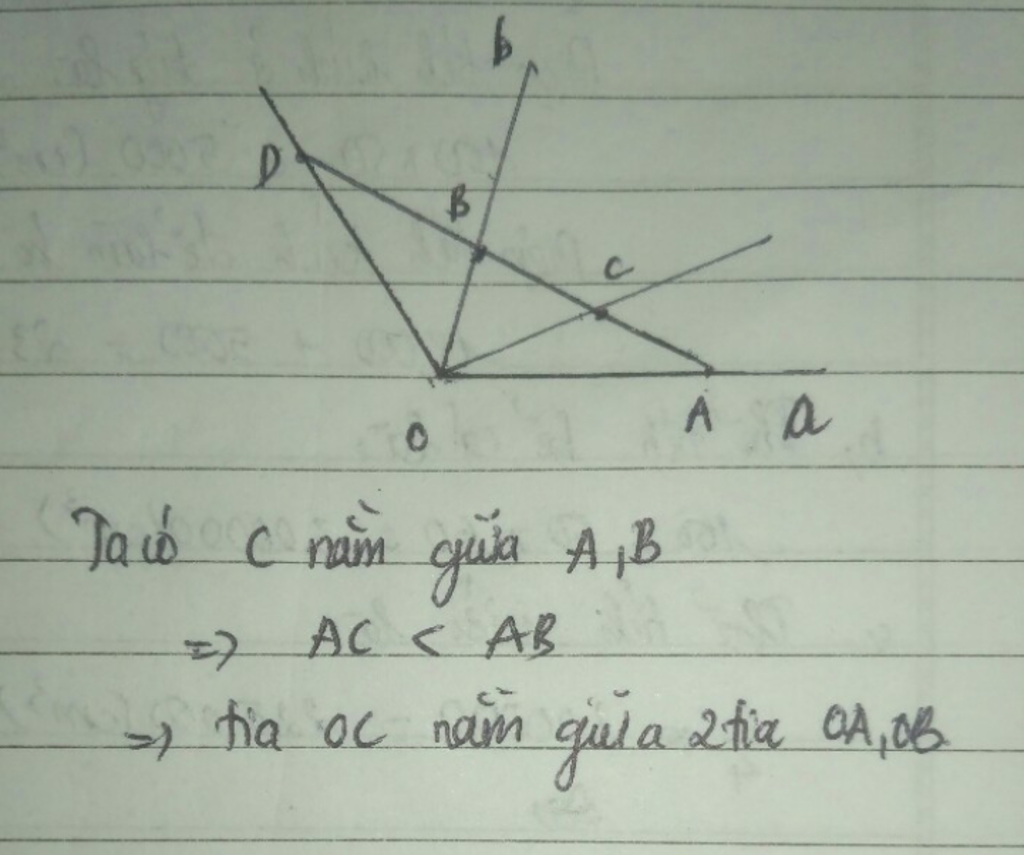 b
D
B
C
O
A
a
Ta có C nằm giữa A, B
=> AC < AB
=> tia OC nằm giữa 2 tia OA, OB